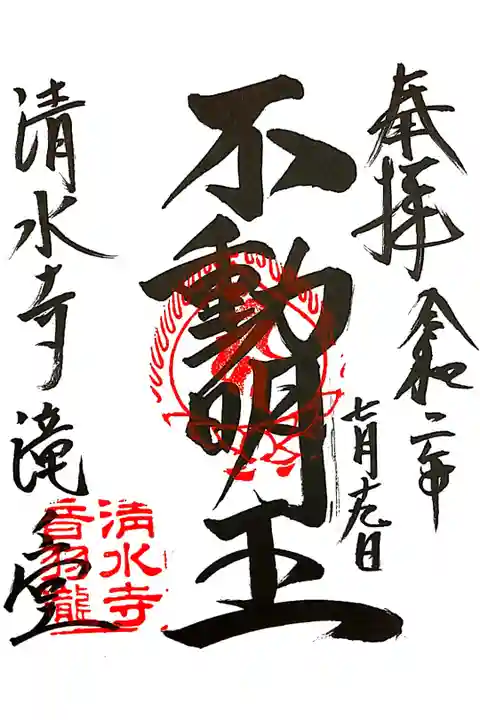 奉拝
令和二年
七月十九日
不動明王
清水寺滝堂
清水寺
音羽龍